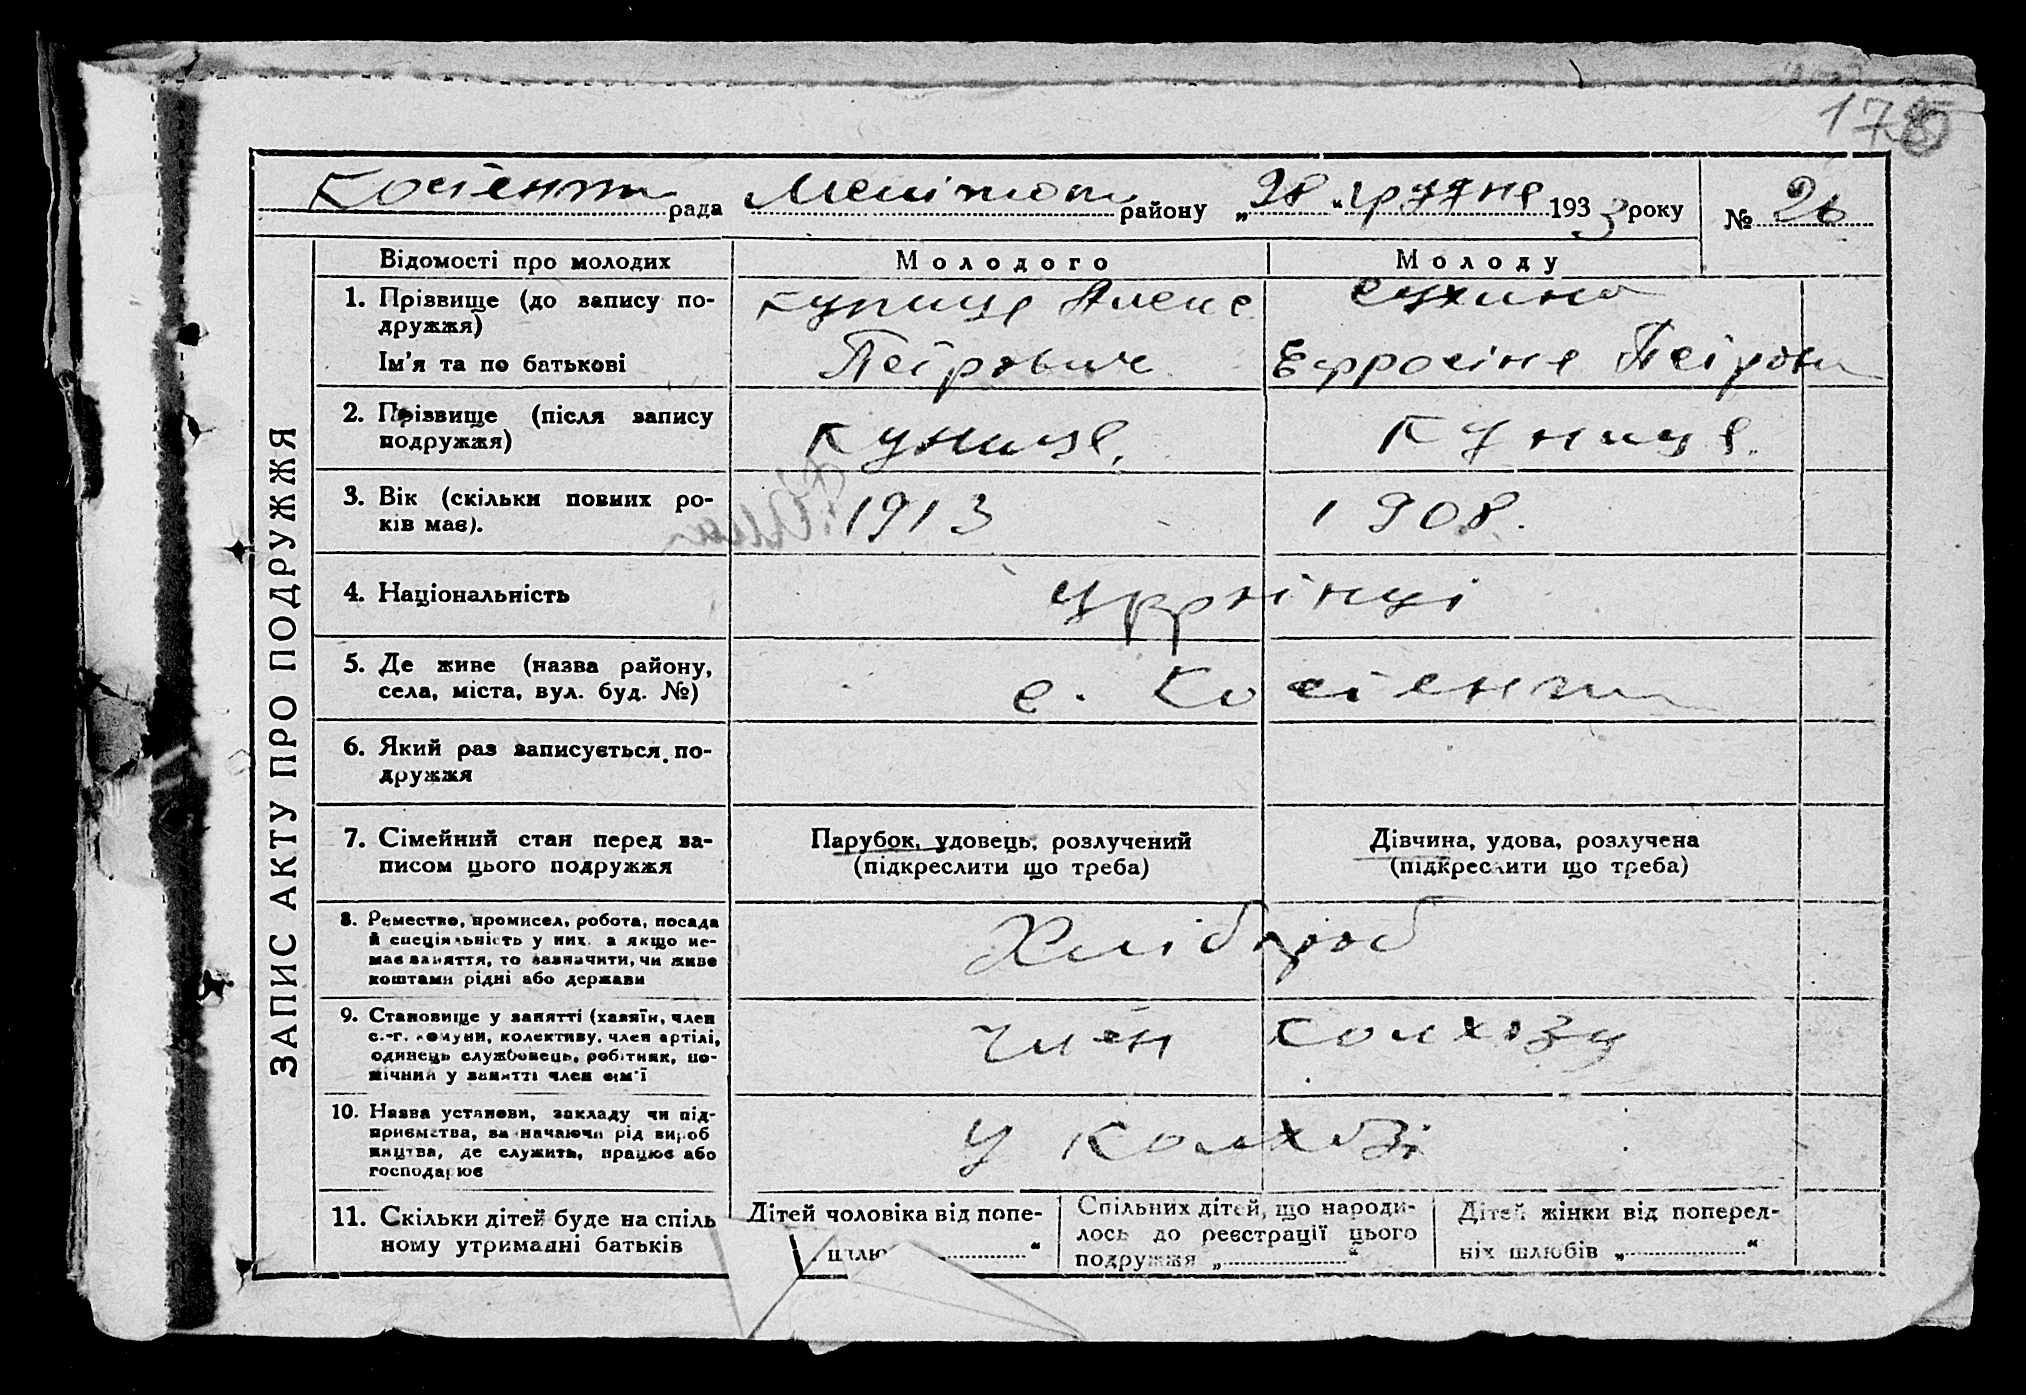 178
Костянти рада Меліτοп району „28" грудня 1933 року № 26
ЗАПИС АКТУ ПРО ПОДРУЖЖЯ
Відомості про молодих Молодого Молоду
1. Прізвище (до запису по-
дружжя)
Куниця Алекс Сухина
Ім'я та по батькові Петрович Ефросіня Петровн
2. Прізвище (після запису
подружжя)
Куниця. Куниця.
3. Вік (скільки повних ро-
ків має).
1913 1908.
4. Національність Українці
5. Де живе (назва району,
села, міста, вул. буд. №)
с. Костянти
6. Який раз записується по-
дружжя
7. Сімейний стан перед за-
писом цього подружжя
Парубок, удовець, розлучений
(підкреслити що треба)
Дівчина, удова, розлучена
(підкреслити що треба)
8. Ремество, промисел, робота, посада
й спеціяльність у них, а якщо не-
має заняття, то зазначити, чи живе
коштами рідні або держави
Хлібороб
9. Становище у занятті (хазяїн, член
с.-г. комуни, колективу, член артілі,
одинець службовець, робітник, по-
мічний у занятті член сім'ї
член колхозу
10. Назва установи, закладу чи під-
приємства, зазначаючи рід вироб
ництва, де служить, працює або
господарює
у колхозі
11. Скільки дітей буде на спіль
ному утриманні батьків
Дітей чоловіка від попе-
шлю "
Спільних дітей, що народи-
лось до реєстрації цього
подружжя „ "
Дітей жінки від поперед-
ніх шлюбів „ "